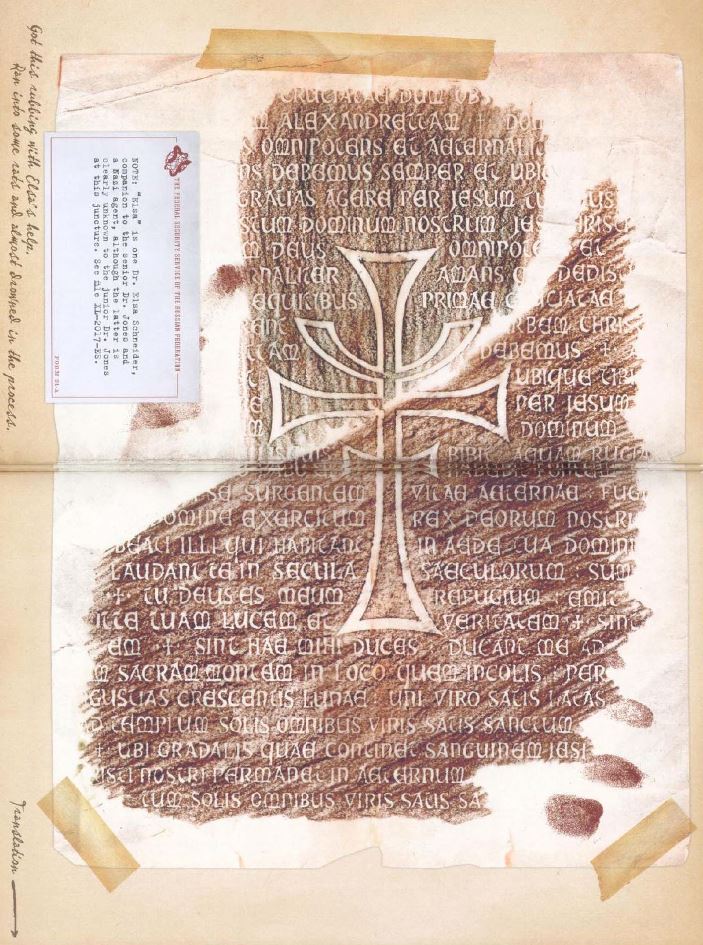 Got this rubbing with Elsa's help.
Ran into some rats and almost drowned in the process.
THE FEDERAL SECURITY SERVICE OF THE RUSSIAN FEDERATION
NOTE: "Elsa" is one Dr. Elsa Schneider,
companion to the senior Dr. Jones and
a Nazi agent, although the latter is
clearly unknown to the junior Dr. Jones
at this juncture. See file XL-2017-ES.
CRUCIATAE DUM UBS
ALEXANDRETTAM + DUM
OMNIPOTENS ET AETERNALI
NS DEBEMUS SEMPER ET UBIQ
GRATIAS AGERE PER JESUM
STUM DOMINUM NOSTRUM JE RIS
M DEUS OMNIPOTE ET
RNALITER AMANS DEDIS
EQUITIBUS PRIMAE CRUCIATAE
RBEM CHRIS
TAM DEBEMUS
UBIQUE
PER JESUM
DOMINUM
BIBIT AQUAM
SE SURGENTEM VITAE AETERNAE FUG
OMINE EXERCITUM REX DEORUM NOSTR
BEATI ILLI QUI HABITANT IN AEDE TUA DOMIN
LAUDANT TE IN SECULA SAECULORUM SUM
+ TU DEUS ES MEUM REFUGIUM EMIT
TE TUAM LUCEM ET VERITATEM + SINT
EM + SINT HAE MIHI DUCES DUCANT ME AD
M SACRAM MONTEM IN LOCO QUEM INCOLIS PER
GUSTIAS CRESCENTIS LUNAE UNI VIRO SATIS LATAS
D TEMPLUM SOLIS OMNIBUS VIRIS SATIS SANCTUM
+ UBI GRADALIS QUAE CONTINET SANGUINEM JESI
ISTI NOSTRI PERMANET IN AETERNUM
TUM SOLIS OMNIBUS VIRIS SATIS SA
Translation